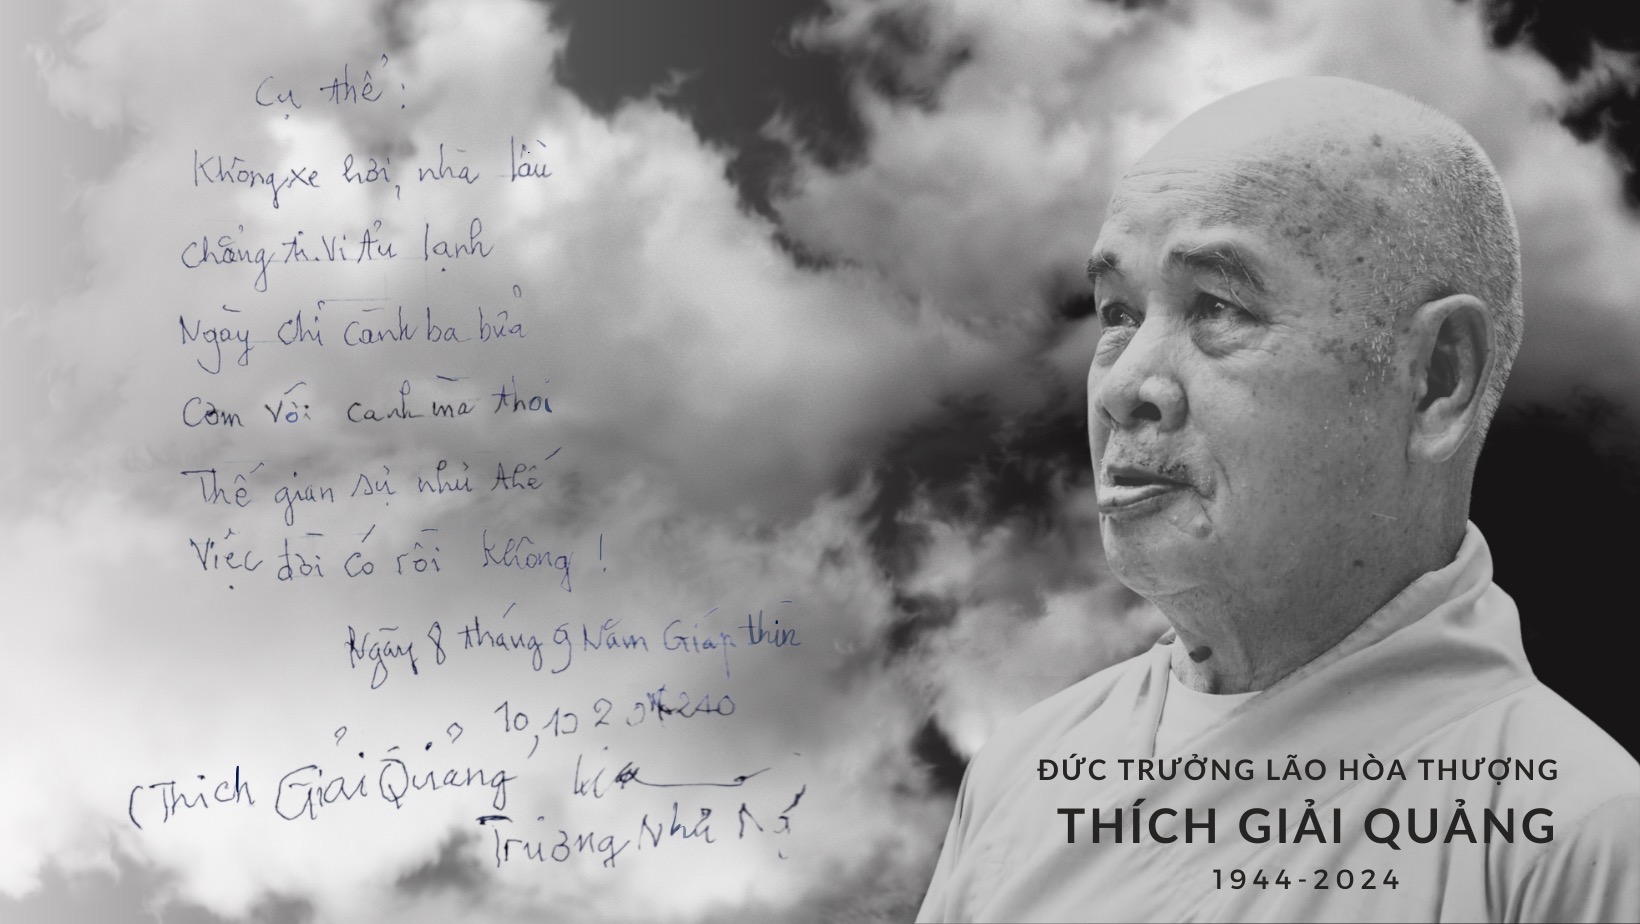 Cụ thể :
Không xe hơi, nhà lầu
Chẳng ti. Vi tủ lạnh
Ngày chỉ cảnh ba bữa
Cơm với canh mà thôi
Thế gian sự như thế
Việc đời có rồi không !
Ngày 8 tháng 9 Năm Giáp thìn
10, 10 20
(Thích Giải Quảng
Trương Như
ĐỨC TRƯỞNG LÃO HÒA THƯỢNG
THÍCH GIẢI QUẢNG
1944-2024